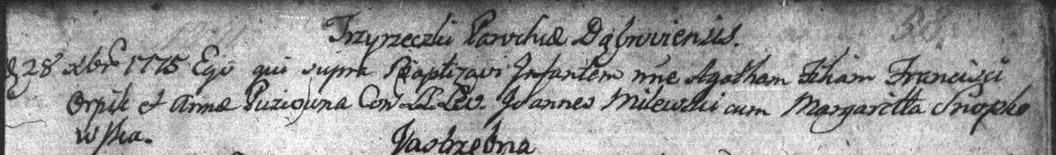 Trzyrzeczki Parochiæ Dąbroviensis.
28 Xbr 1775 Ego qui supra Baptizavi Infantem nne Agatham Filiam Francisci
Orpik et Annæ Puziowna Con LL Lev. Joannes Milewski cum Margaritta Snopko
wska.
Jastrzębna